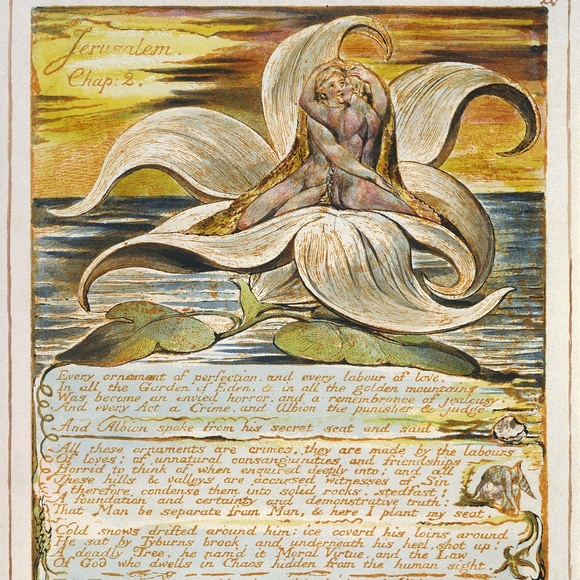 Jerusalem.
Chap: 2.
Every ornament of perfection, and every labour of love,
In all the Garden of Eden, & in all the golden mountains
Was become an envied horror, and a remembrance of jealousy:
And every Act a Crime, and Albion the punisher & judge.
And Albion spoke from his secret seat and said
All these ornaments are crimes, they are made by the labours
Of loves: of unnatural consanguinities and friendships
Horrid to think of when enquired deeply into; and all
These hills & valleys are accursed witnesses of Sin
I therefore condense them into solid rocks, stedfast!
A foundation and certainty and demonstrative truth:
That Man be separate from Man, & here I plant my seat.
Cold snows drifted around him: ice coverd his loins around
He sat by Tyburns brook, and underneath his heel, shot up!
A deadly Tree, he nam'd it Moral Virtue, and the Law
Of God who dwells in Chaos hidden from the human sight.